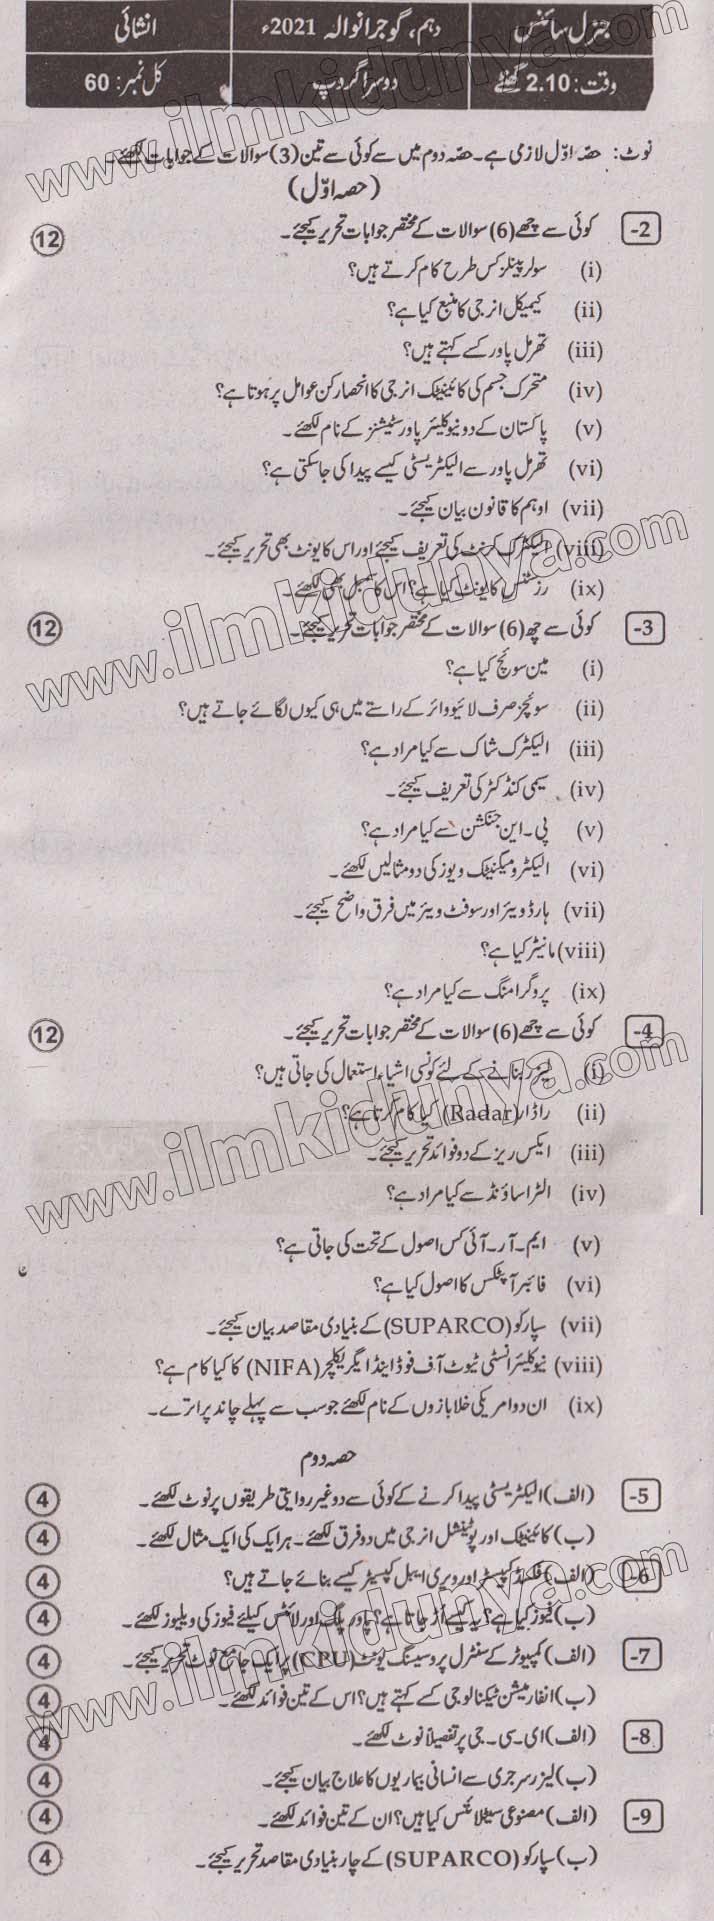 جنرل سائنس دہم، گوجرانوالہ 2021ء انشائی
وقت: 2.10 گھنٹے دوسرا گروپ کل نمبر: 60
نوٹ: حصہ اوّل لازمی ہے۔ حصہ دوم میں سے کوئی سے تین (3) سوالات کے جوابات لکھئے۔
(حصہ اوّل)
2- کوئی سے چھے (6) سوالات کے مختصر جوابات تحریر کیجئے۔ 12
(i) سولر پینلز کس طرح کام کرتے ہیں؟
(ii) کیمیکل انرجی کا منبع کیا ہے؟
(iii) تھرمل پاور کسے کہتے ہیں؟
(iv) متحرک جسم کی کائینیٹک انرجی کا انحصار کن عوامل پر ہوتا ہے؟
(v) پاکستان کے دو نیوکلیئر پاور سٹیشنز کے نام لکھئے۔
(vi) تھرمل پاور سے الیکٹریسٹی کیسے پیدا کی جاسکتی ہے؟
(vii) اوہم کا قانون بیان کیجئے۔
(viii) الیکٹرک کرنٹ کی تعریف کیجئے اور اس کا یونٹ بھی تحریر کیجئے۔
(ix) رزسٹنس کا یونٹ کیا ہے؟ اس کا سمبل بھی لکھئے۔
3- کوئی سے چھ (6) سوالات کے مختصر جوابات تحریر کیجئے۔ 12
(i) مین سوئچ کیا ہے؟
(ii) سوئچز صرف لائیو وائر کے راستے میں ہی کیوں لگائے جاتے ہیں؟
(iii) الیکٹرک شاک سے کیا مراد ہے؟
(iv) سیمی کنڈکٹر کی تعریف کیجئے۔
(v) پی۔ این جنکشن سے کیا مراد ہے؟
(vi) الیکٹرومیگنیٹک ویوز کی دو مثالیں لکھئے۔
(vii) ہارڈ ویئر اور سوفٹ ویئر میں فرق واضح کیجئے۔
(viii) مانیٹر کیا ہے؟
(ix) پروگرامنگ سے کیا مراد ہے؟
4- کوئی سے چھے (6) سوالات کے مختصر جوابات تحریر کیجئے۔ 12
(i) لیزر بنانے کے لئے کونسی اشیاء استعمال کی جاتی ہیں؟
(ii) راڈار (Radar) کیا کام کرتا ہے؟
(iii) ایکس ریز کے دو فوائد تحریر کیجئے۔
(iv) الٹرا ساؤنڈ سے کیا مراد ہے؟
(v) ایم۔ آر۔ آئی کس اصول کے تحت کی جاتی ہے؟
(vi) فائبر آپٹکس کا اصول کیا ہے؟
(vii) سپارکو (SUPARCO) کے بنیادی مقاصد بیان کیجئے۔
(viii) نیوکلیئر انسٹی ٹیوٹ آف فوڈ اینڈ ایگریکلچر (NIFA) کا کیا کام ہے؟
(ix) ان دو امریکی خلابازوں کے نام لکھئے جو سب سے پہلے چاند پر اترے۔
حصہ دوم
5- (الف) الیکٹریسٹی پیدا کرنے کے کوئی سے دو غیر روایتی طریقوں پر نوٹ لکھئے۔ 4
(ب) کائینیٹک اور پوٹینشل انرجی میں دو فرق لکھئے۔ ہر ایک کی ایک مثال لکھئے۔ 4
6- (الف) فکسڈ کپیسٹر اور ویری ایبل کپیسٹر کیسے بنائے جاتے ہیں؟ 4
(ب) فیوز کیا ہے؟ یہ کیسے اُڑ جاتا ہے؟ پاور پلگ اور لائٹس کیلئے فیوز کی ویلیوز لکھئے۔ 4
7- (الف) کمپیوٹر کے سنٹرل پروسیسنگ یونٹ (CPU) پر ایک جامع نوٹ تحریر کیجئے۔ 4
(ب) انفارمیشن ٹیکنالوجی کسے کہتے ہیں؟ اس کے تین فوائد لکھئے۔ 4
8- (الف) ای۔ سی۔ جی پر تفصیلاً نوٹ لکھئے۔ 4
(ب) لیزر سرجری سے انسانی بیماریوں کا علاج بیان کیجئے۔ 4
9- (الف) مصنوعی سیٹلائٹس کیا ہیں؟ ان کے تین فوائد لکھئے۔ 4
(ب) سپارکو (SUPARCO) کے چار بنیادی مقاصد تحریر کیجئے۔ 4
www.ilmkidunya.com
www.ilmkidunya.com
www.ilmkidunya.com
www.ilmkidunya.com